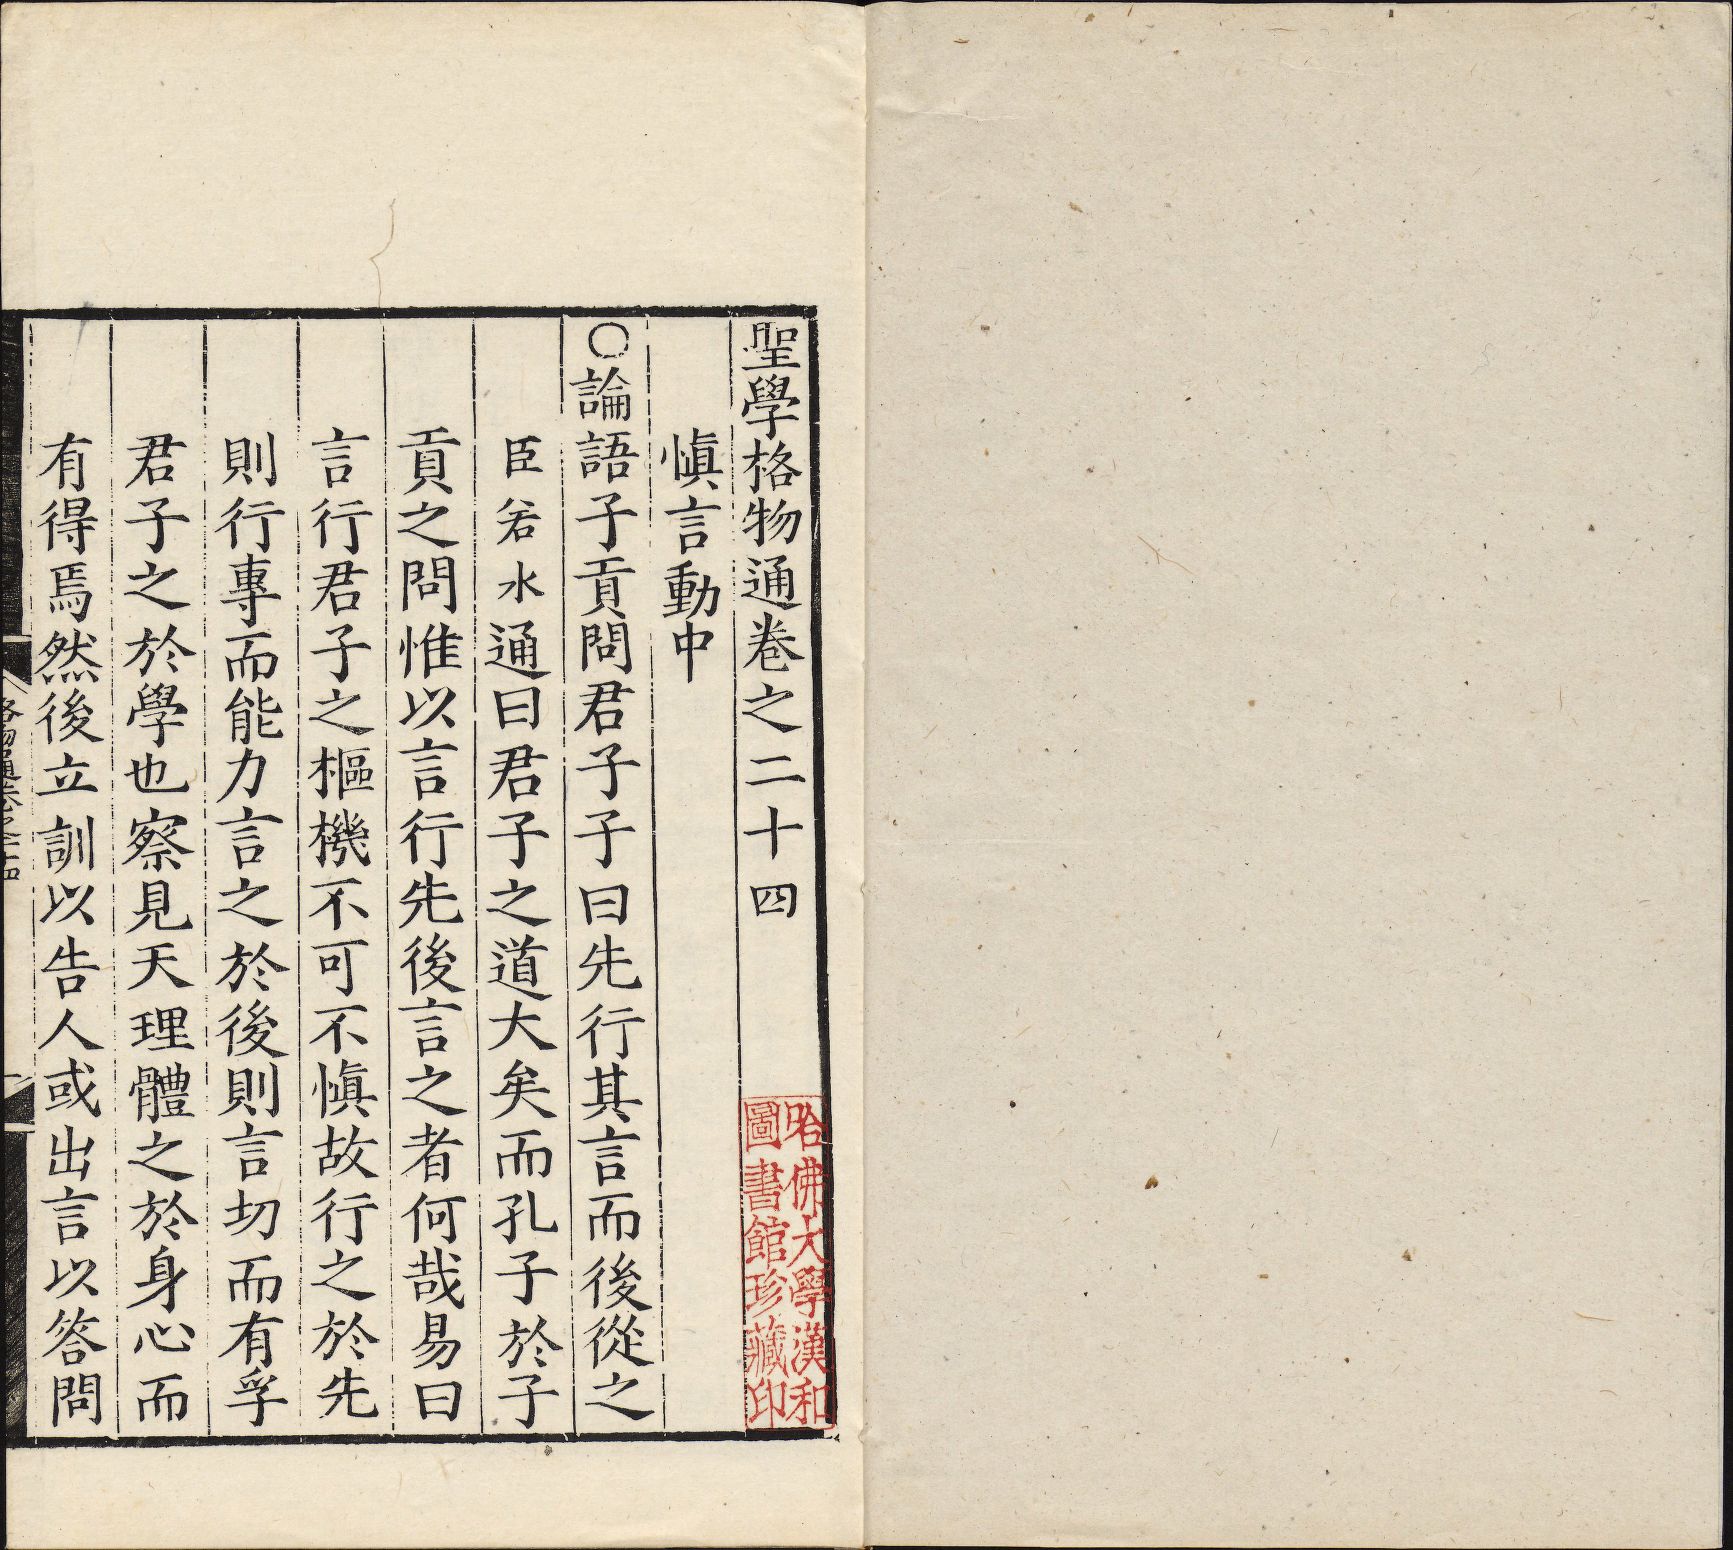 聖學格物通卷之二十四
慎言動中
○論語子貢問君子子曰先行其言而後從之
臣若水通曰君子之道大矣而孔子於子
貢之問惟以言行先後言之者何哉易曰
言行君子之樞機不可不慎故行之於先
則行專而能力言之於後則言切而有孚
君子之於學也察見天理體之於身心而
有得焉然後立訓以告人或出言以答問
格物通卷之二十四
哈佛大學漢和
圖書館珍藏印